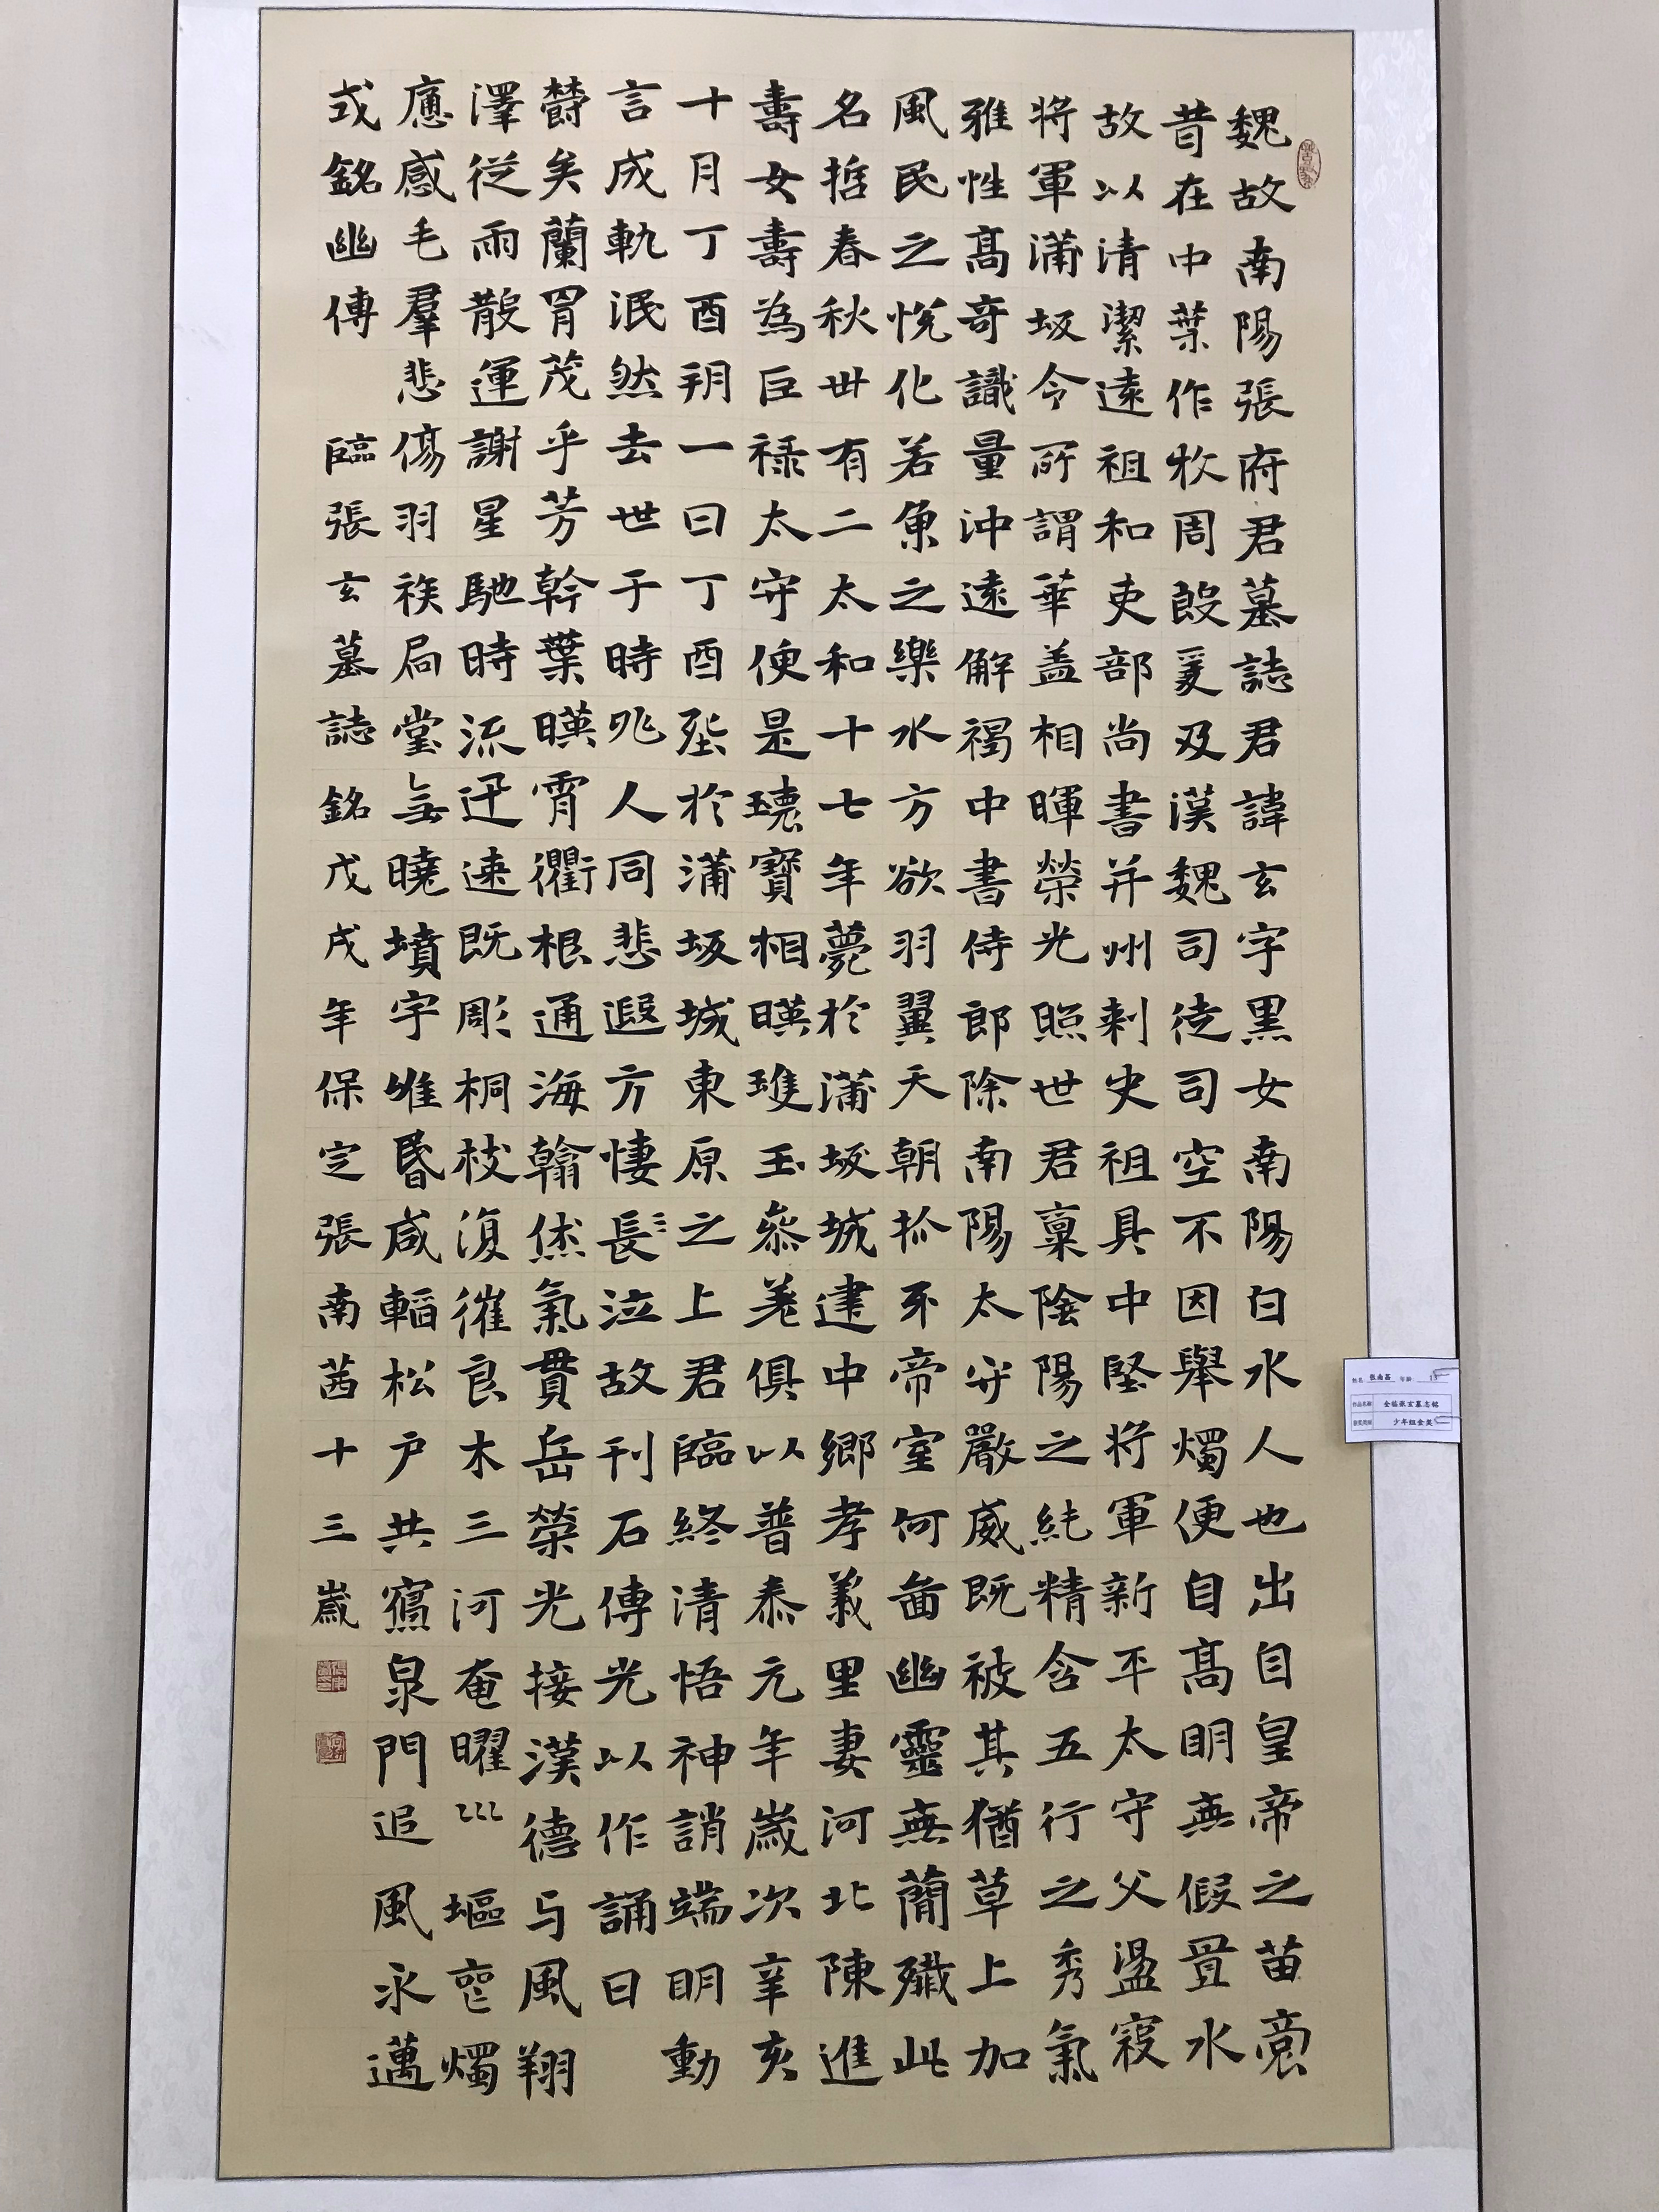 魏故南陽張府君墓誌君諱玄字黑女南陽白水人也出自皇帝之苗裔
昔在中葉作牧周殷爰及漢魏司徒司空不因舉燭便自高明無假置水
故以清潔遠祖和吏部尚書并州刺史祖具中堅將軍新平太守父盪寇
將軍蒲坂令所謂華蓋相暉榮光照世君稟陰陽之純精含五行之秀氣
雅性高奇識量沖遠解褐中書侍郎除南陽太守嚴威既被其猶草上加
風民之悅化若魚之樂水方欲羽翼天朝抓牙帝室何啚幽靈無簡殲此
名哲春秋卅有二太和十七年薨於蒲坂城建中鄉孝義里妻河北陳進
壽女壽為巨祿太守便是瓌寶相暎瓊玉參差俱以普泰元年歲次辛亥
十月丁酉朔一日丁酉塟於蒲坂城東原之上君臨終清悟神誚端明動
言成軌泯然去世于時兆人同悲遐方悽長泣故刊石傳光以作誦曰
欝矣蘭胄茂乎芳幹葉暎霄衢根通海翰烋氣貫岳榮光接漢德与風翔
澤從雨散運謝星馳時流迅速既彫桐枝復摧良木三河奄曜巛塸喪燭
應感毛羣悲傷羽族扃堂無曉墳宇唯昏咸韜松戶共寢泉門追風永邁
式銘幽傳 臨張玄墓誌銘戊戌年保定張南茜十三歲
姓名 张南茜 年龄 13
作品名称 全临张玄墓志铭
获奖类别 少年组金奖